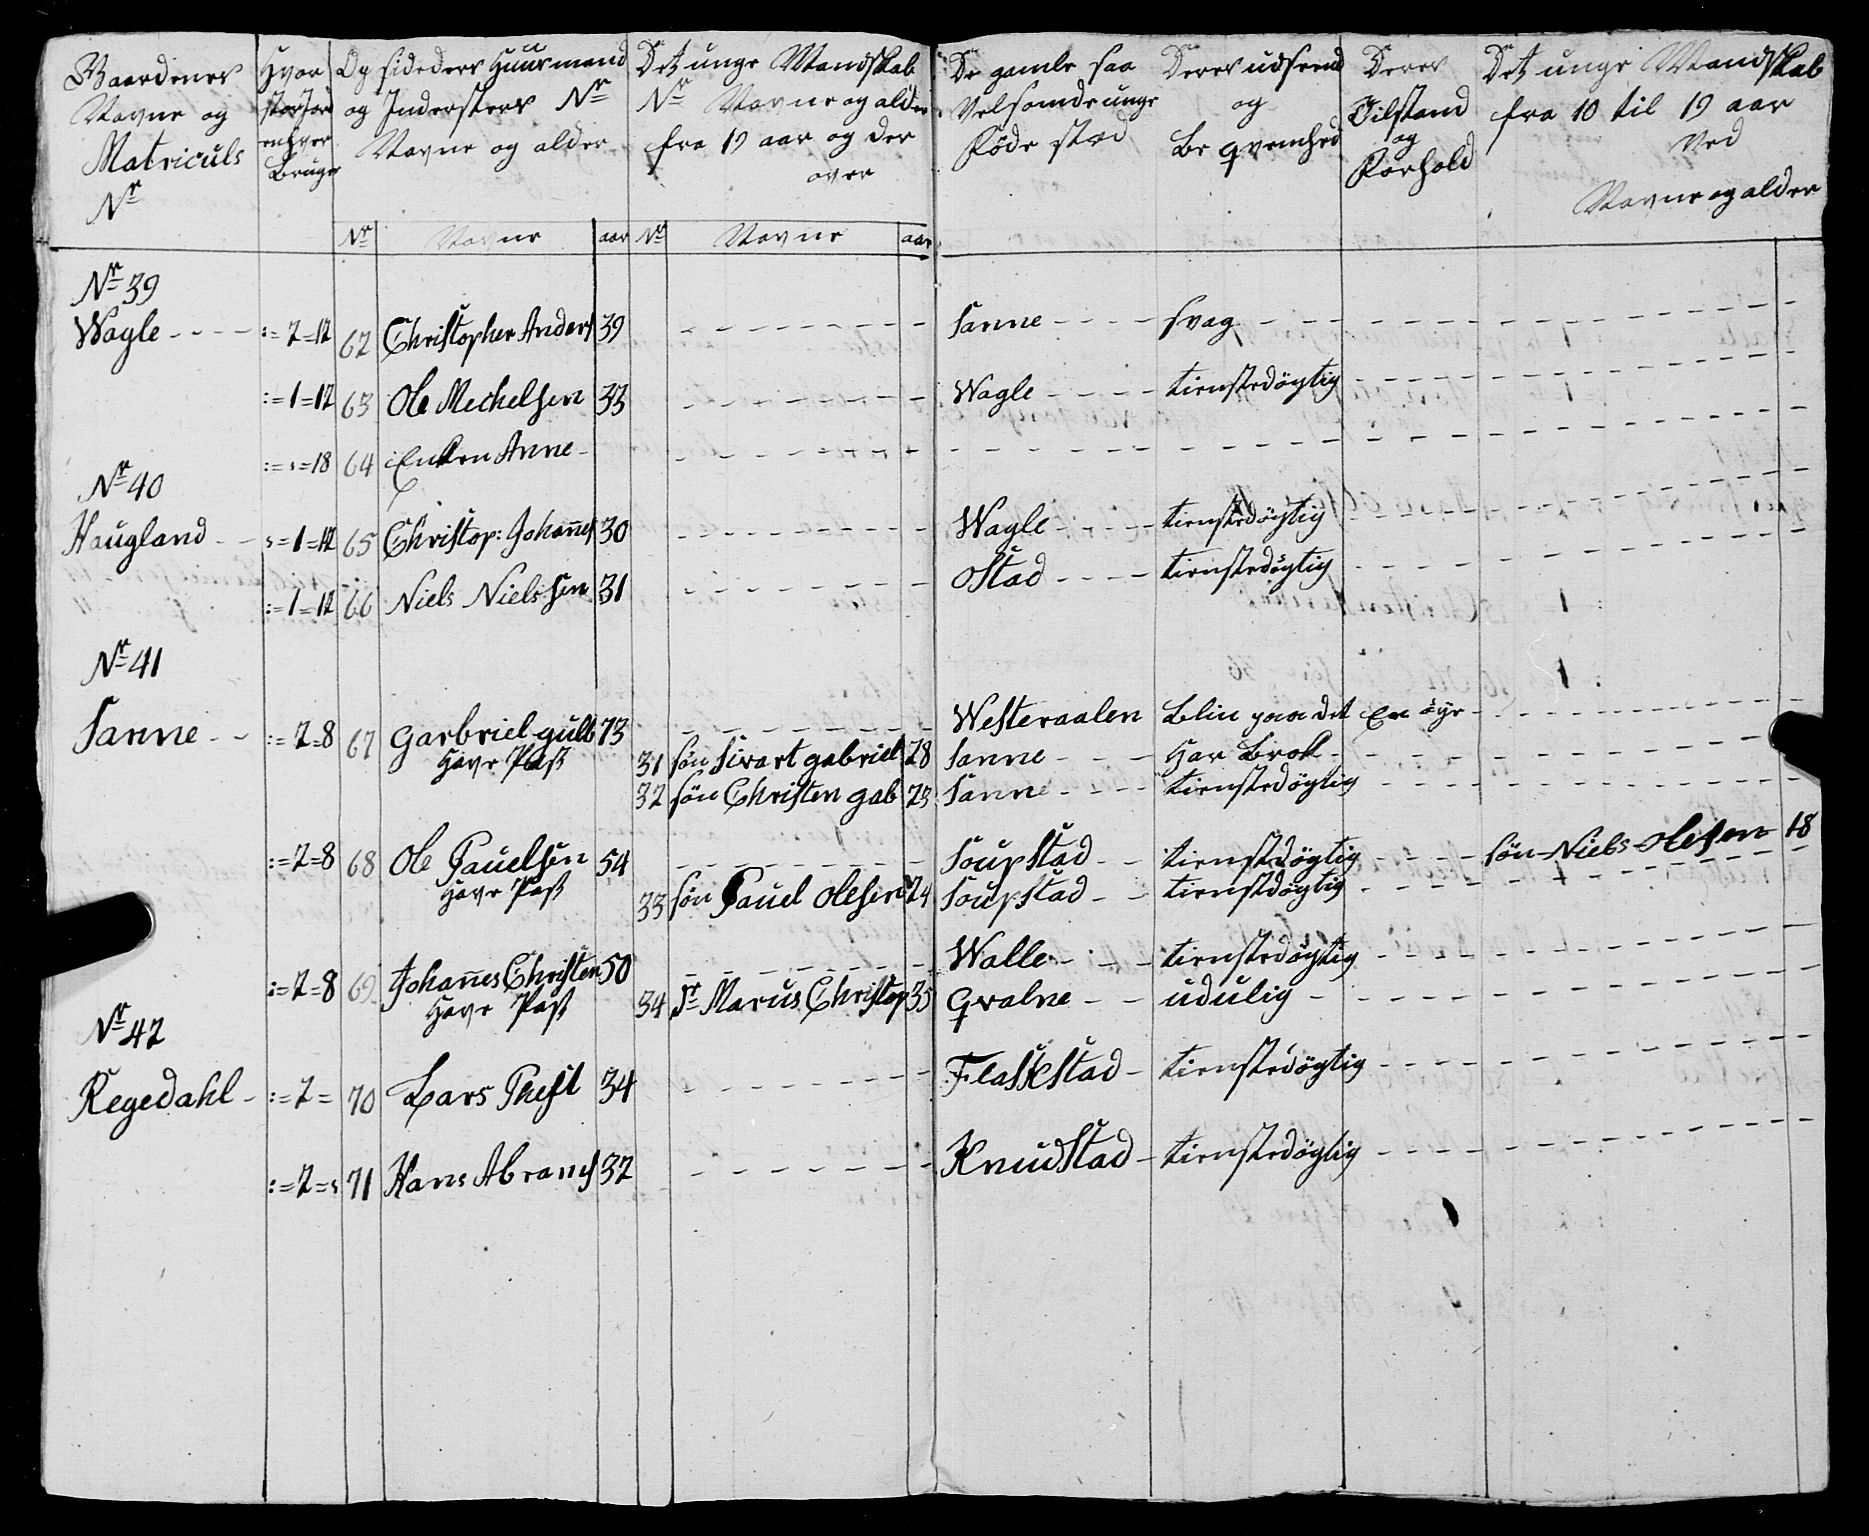 Gaardenes Navne og Matriculs Nr
Hvor stor Jord enhver Bruger
Opsideders Huusmænd og Indersters Nr Navne og alder
Det unge Mandskab Nr Navne og alder fra 19 aar og der over
De gamle saa Velsom de unge Føde stæd
Deres udseend og Beqvemhed
Deres Tilstand og Forhold
Det unge Mandskab fra 10 til 19 aar Ved Navne og alder
Nr Navne aar Nr Navne aar
Nr 39
Wagle - - - - := 2=12 62 Christopher Anders 39 - - - Sanne - - - - svag - - -
:=1=12 63 Ole Mechelsen 33 - - - Wagle - - - - tienstedöygtig - - -
:=:=18 64 Enken Anne - - - -
Nr 40
Haugland - - :=1=12 65 Christop: Johannes 30 - - - Wagle - - - - tienstedöygtig - - -
:=1=12 66 Niels Nielssen 31 - - - Ostad - - - - tienstedögtig - - -
Nr 41
Sanne - - :=2=8 67 Garbriel gulb 73 - - - Westeraalen blin paa det En öye - - -
Have Pass 31 søn Sivart gabriel 28 Sanne - - - Har Brok - - -
32 søn Christen gab 23 Sanne - - - tienstedögtig - - -
:=2=8 68 Ole Pauelsen 54 - - - Soupstad - - tienstdögtig - - - søn Niels Olesen 18
Have Pass 33 søn Pauel Olesen 24 Soupstad - - tienstdögtig - - -
:=2=8 69 Johannes Christen 50 - - - Walle - - - tienstedögtig - - -
Have Pass 34 Sr Marcus Christop 35 Qvalne - - udulig - - -
Nr 42
Regedahl - :=2= 70 Lars Thest 34 - - - Flaskstad - tienstedögtig - - -
:=2=: 71 Hans Abrams 32 - - - Knudstad - tienstedögtig - - -